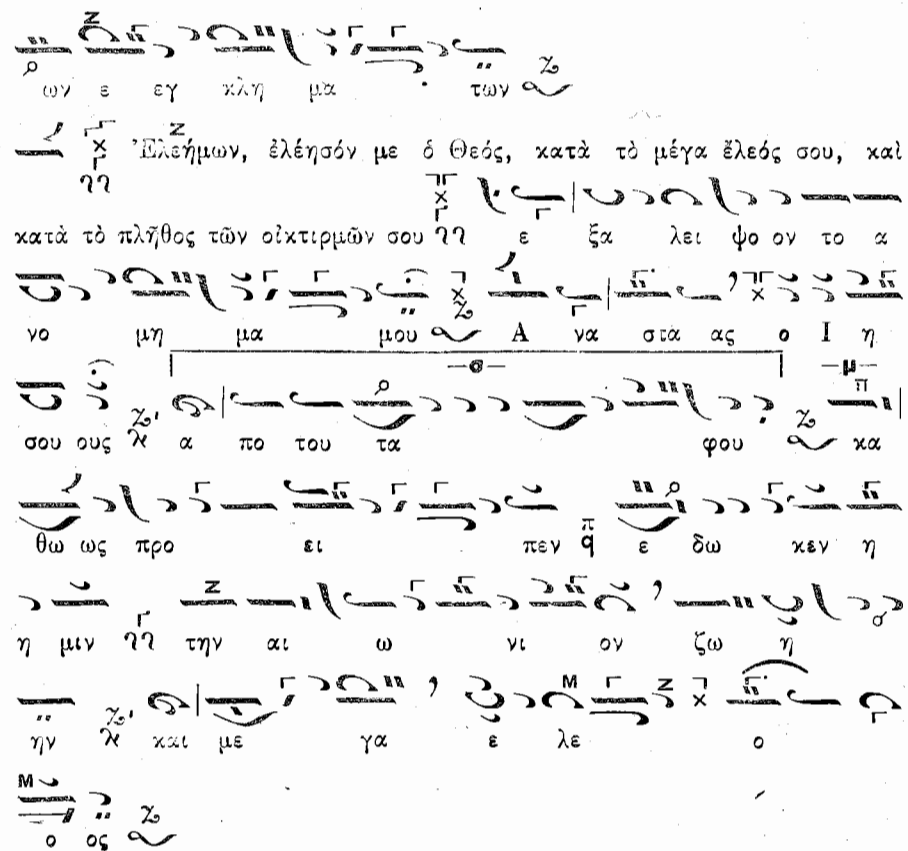 ων ε εγ κλη μα των
Ἐλεήμων, ἐλέησόν με ὁ Θεός, κατὰ τὸ μέγα ἔλεός σου, καὶ
κατὰ τὸ πλῆθος τῶν οἰκτιρμῶν σου ε ξα λει ψο ον το α
νο μη μα μου Α να στα ας ο Ι η
σου ους α πο του τα φου κα
θω ως προ ει πεν ε δω κεν η
η μιν την αι ω νι ον ζω η
ην και με γα ε λε ο
ο ος